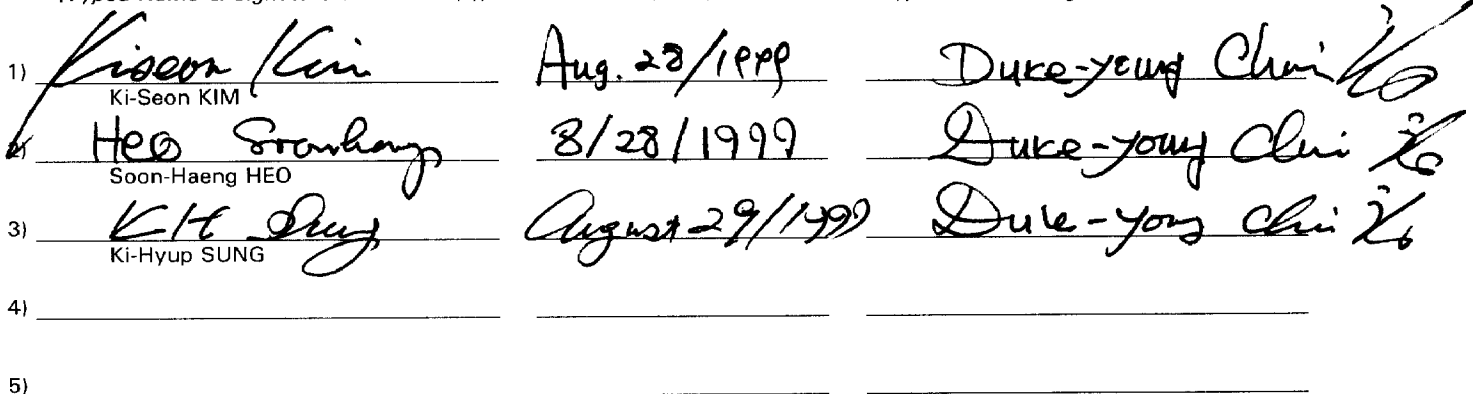 1) Kiseon Kim Aug. 28/1999 Duke-young Choi
Ki-Seon KIM
Heo Soonhaeng 8/28/1999 Duke-young Choi
Soon-Haeng HEO
3) KH Sung August 29/1999 Duke-young Choi
Ki-Hyup SUNG
4)
5)